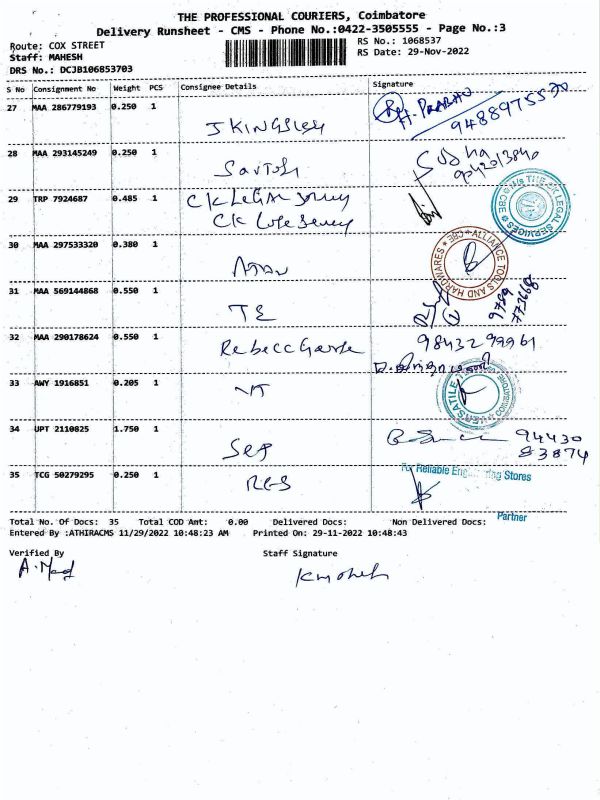 THE PROFESSIONAL COURIERS, Coimbatore
Delivery Runsheet - CMS - Phone No.:0422-3505555 - Page No.:3
Route: COX STREET
RS No.: 1068537
Staff: MAHESH
RS Date: 29-Nov-2022
DRS No.: DCJB106853703
S No Consignment No Weight PCS Consignee Details Signature
27 MAA 286779193 0.250 1
J KINGSLEY
H. PRABHU
9488975570
28 MAA 293145249 0.250 1
Santosh
Sudha
29 TRP 7924687 0.485 1
CK Legal
CK
LEGAL SERVICES
CBE
30 MAA 297533320 0.380 1
ALLIANCE TOOLS AND HARDWARES
CBE
31 MAA 569144868 0.550 1
TE
9789
773668
32 MAA 290178624 0.550 1
Rebecca
98432 99961
33 AWY 1916851 0.205 1
VT
VERSATILE
COIMBATORE
34 UPT 2110825 1.750 1
94430
83874
35 TCG 50279295 0.250 1
RES
For Reliable Engineering Stores
Partner
Total No. Of Docs: 35 Total COD Amt: 0.00 Delivered Docs: Non Delivered Docs:
Entered By :ATHIRACMS 11/29/2022 10:48:23 AM Printed On: 29-11-2022 10:48:43
Verified By Staff Signature